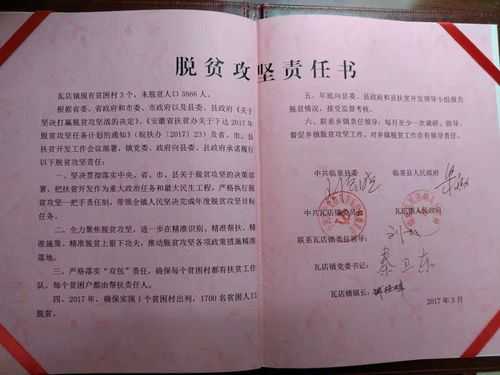 脱贫攻坚责任书
瓦店镇现有贫困村3个，未脱贫人口5986人。
根据省委、省政府和市委、市政府以及县委、县政府《关于
坚决打赢脱贫攻坚战的决定》、《安徽省扶贫办关于下达2017年
脱贫攻坚任务计划的通知》（皖扶办〔2017〕23）及省、市、县
扶贫开发工作会议部署，镇党委、政府向县委、县政府承诺履行
以下脱贫攻坚责任：
一、坚决贯彻落实中央、省、市、县关于脱贫攻坚的决策部
署，把扶贫开发作为重大政治任务和最大民生工程，严格执行脱
贫攻坚一把手责任制，带领全镇人民坚决完成年度脱贫攻坚目标
任务。
二、全力聚焦脱贫攻坚，进一步在精准识别、精准帮扶、精
准施策、精准脱贫上狠下功夫，推动脱贫攻坚各项政策措施精准
落地。
三、严格落实“双包”责任，确保每个贫困村都有扶贫工作
队，每个贫困户都由帮扶责任人。
四、2017年，确保实施1个贫困村出列，1700名贫困人口
脱贫。
五、年底向县委、县政府和县扶贫开发领导小组报告
脱贫情况，接受监督考核。
六、联系乡镇责任领导：每月至少一次调研、指导、
督促乡镇脱贫攻坚工作，对乡镇脱贫工作负有领导责任。
中共临泉县委
临泉县人民政府
中共瓦店镇委员会
瓦店镇人民政府
联系瓦店镇责任领导：
瓦店镇党委书记： 秦卫东
瓦店镇镇长：
2017年3月